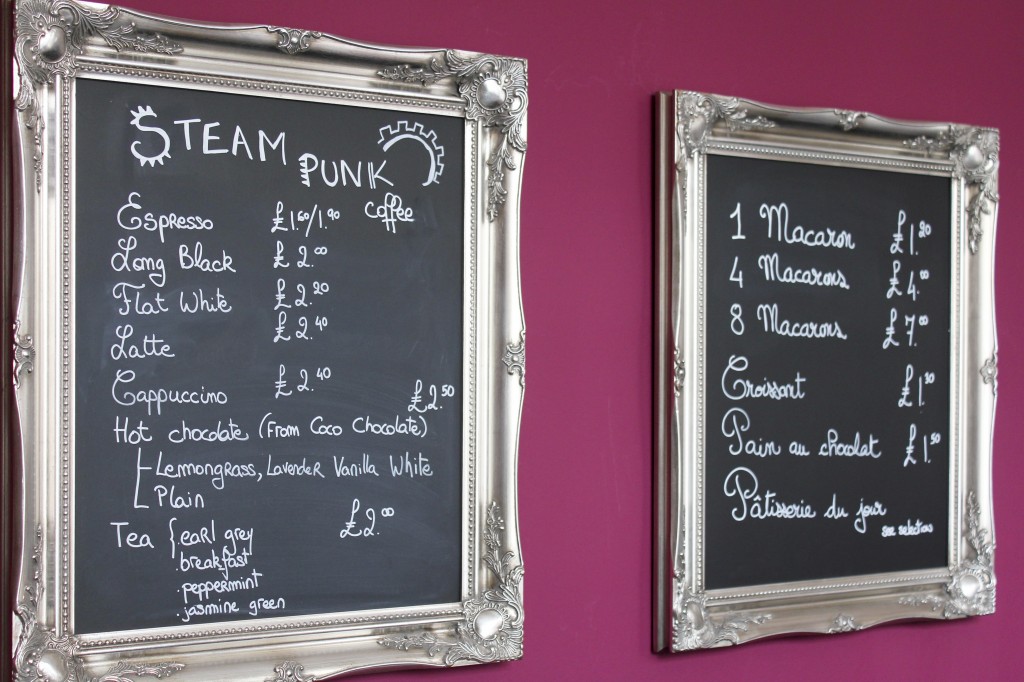 STEAM
PUNK
coffee
Espresso £1.60/1.90
Long Black £2.00
Flat White £2.20
Latte £2.40
Cappuccino £2.40
£2.50
Hot chocolate (From Coco Chocolate)
Lemongrass, Lavender Vanilla White
Plain
Tea { .earl grey £2.00
.breakfast
.peppermint
.jasmine green
1 Macaron £1.20
4 Macarons £4.00
8 Macarons £7.00
Croissant £1.30
Pain au chocolat £1.50
Pâtisserie du jour
see selection